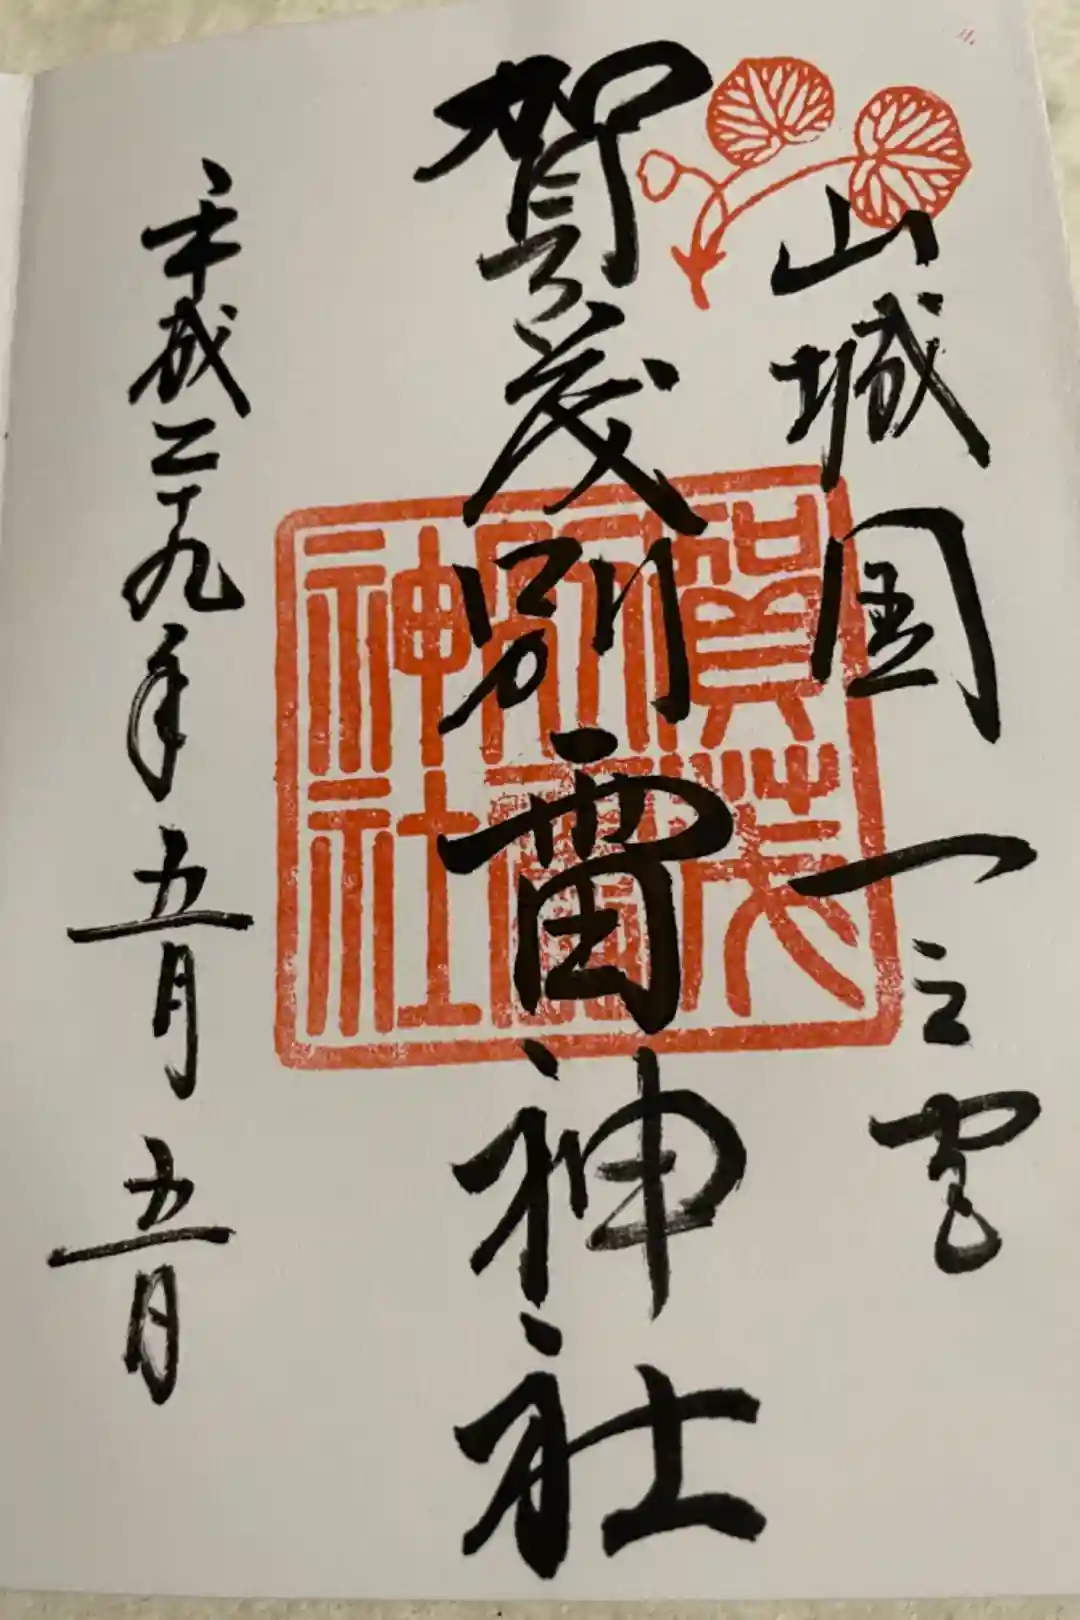 山城国一之宮
賀茂別雷神社
平成二十九年五月五日
賀茂
別雷
神社